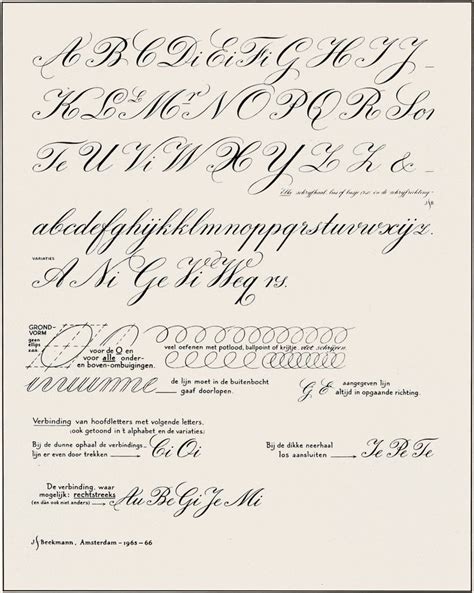 A B C Di Ei Fi G H I J
K L Le Mr N O P Q R Sor
Te U Vi W X Y Z Z &
abcdefghijkklmnopqrstuvwxijz.
VARIATIES
A Ni Ge Vi Weg rs.
GROND-
VORM
geen
ellips
aan.
voor de O en
voor alle onder-
en boven-ombuigingen.
veel oefenen met potlood, ballpoint of krijtje.
de lijn moet in de buitenbocht
gaaf doorlopen.
G, E aangegeven lijn
altijd in opgaande richting.
Verbinding van hoofdletters met volgende letters,
ook getoond in 't alphabet en de variaties:
Bij de dunne ophaal de verbindings-
lijn er even door trekken Ci Oi
Bij de dikke neerhaal
los aansluiten Te Pe Te
De verbinding, waar
mogelijk: rechtstreeks
(en dan ook niet anders) Au Be Gi Je Mi
J. Beekmann, Amsterdam - 1965 - 66